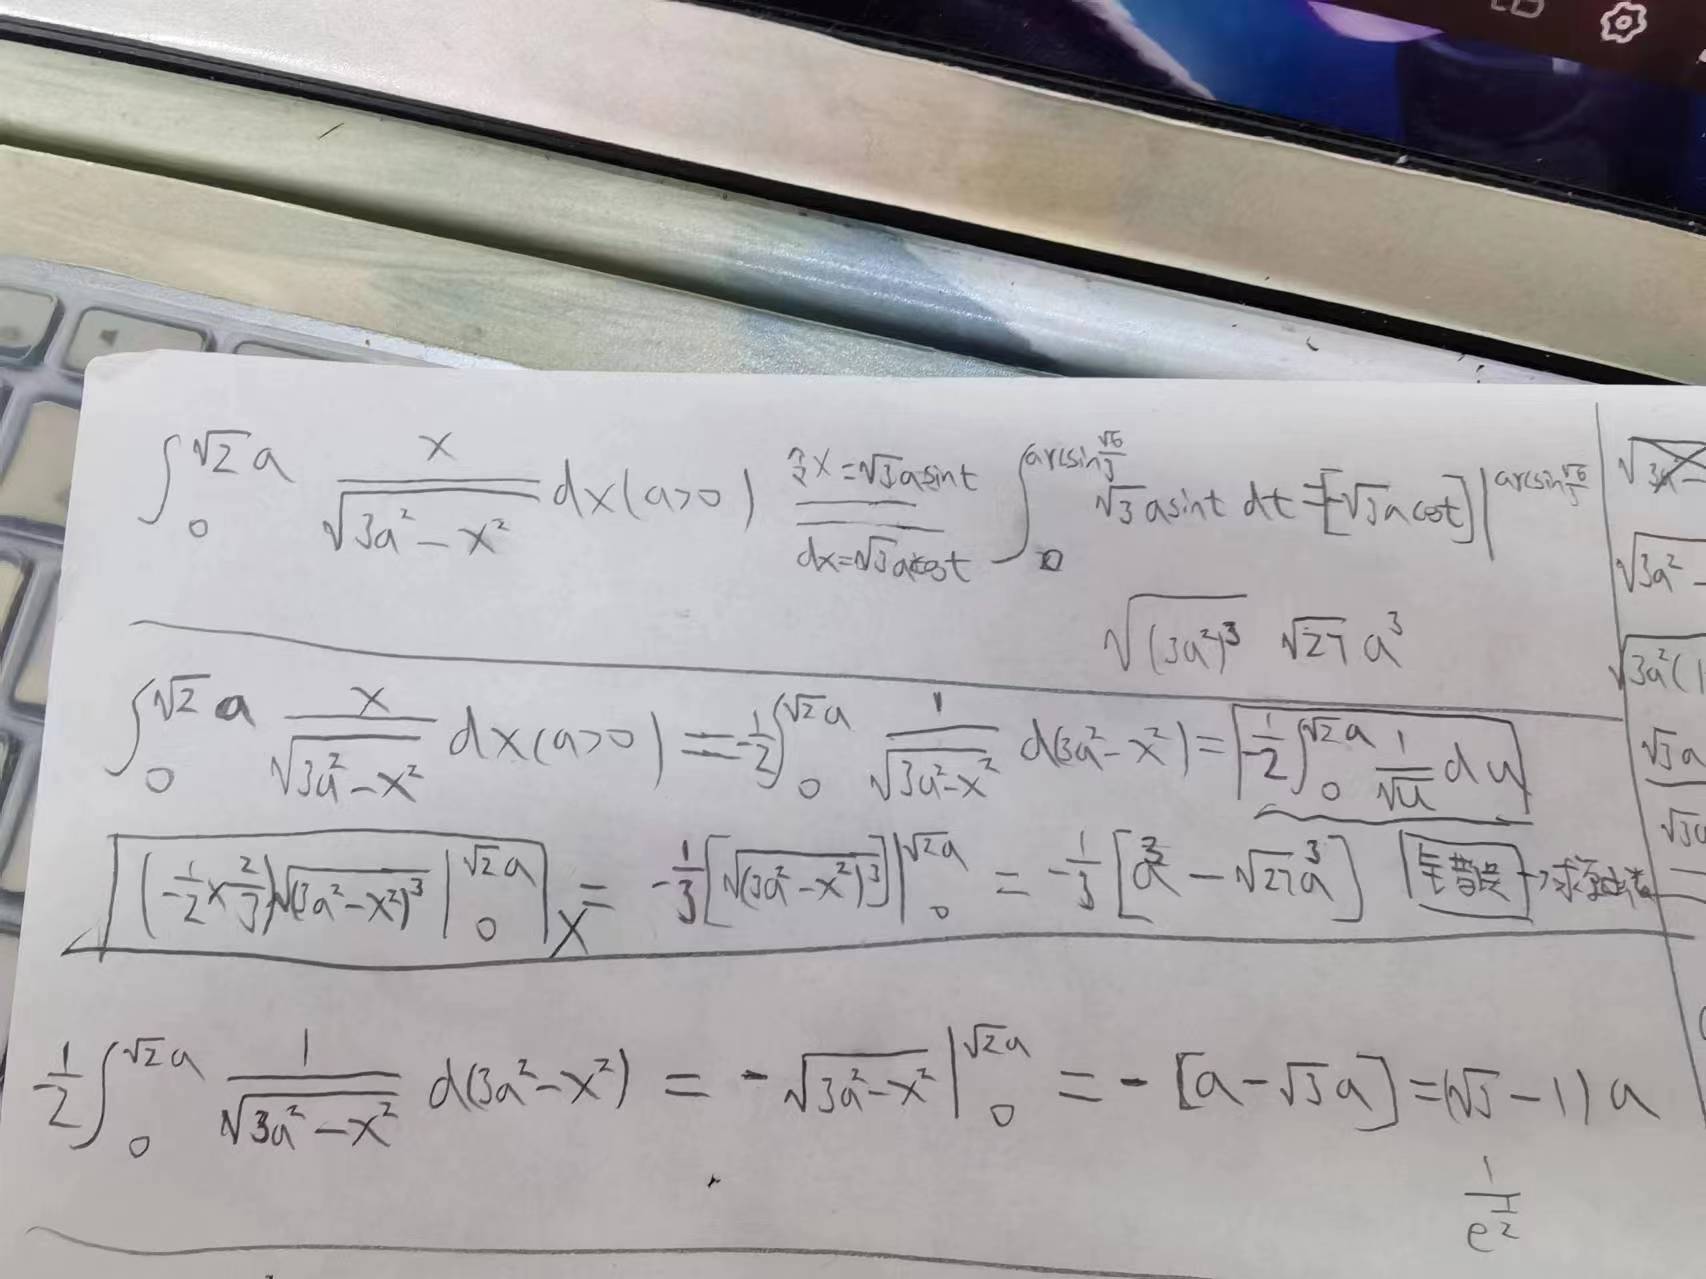 ∫₀^{√2a} x/√(3a²-x²) dx (a>0) 令x=√3asint dx=√3acost ∫₀^{arcsin√6/3} √3asint dt = [-√3acost]|^{arcsin√6/3}
√(3a²)³ √27a³
∫₀^{√2a} x/√(3a²-x²) dx (a>0) = -1/2∫₀^{√2a} 1/√(3a²-x²) d(3a²-x²) = -1/2∫₀^{√2a} 1/√u du
(-1/2×2/3)√(3a²-x²)³|₀^{√2a} X = -1/3[√(3a²-x²)³]|₀^{√2a} = -1/3[a³-√27a³]
1/2∫₀^{√2a} 1/√(3a²-x²) d(3a²-x²) = -√(3a²-x²)|₀^{√2a} = -[a-√3a] = (√3-1)a
1/e^{1/2}
√3a²
√3a² -
√3a²(1
√3a
√3a